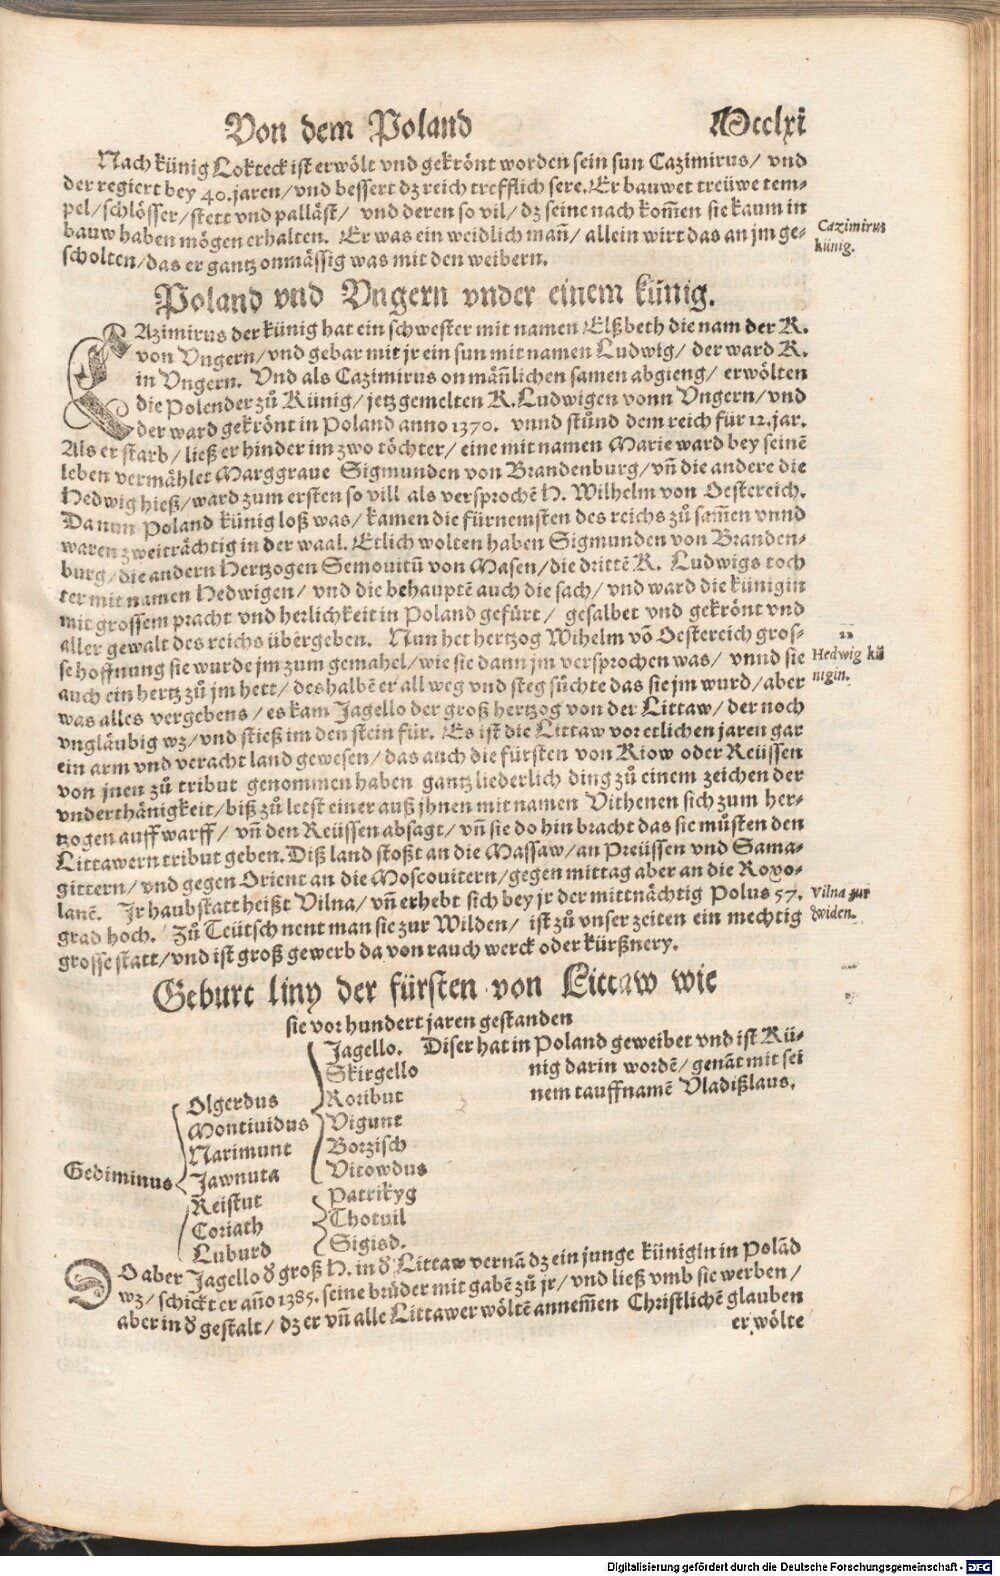 Von dem Poland Mcclxi
Nach künig Lokteck ist erwölt vnd gekrönt worden sein sun Cazimirus/ vnd
der regiert bey 40. jaren/vnd bessert dz reich trefflich sere. Er bauwet treüwe tem-
pel/schlösser/stett vnd palläst/ vnd deren so vil/ dz seine nach kom̃en sie kaum in
bauw haben mögen erhalten. Er was ein weidlich mañ/ allein wirt das an jm ge-
scholten/das er gantz onmässig was mit den weibern.
Cazimirus
künig.
Poland vnd Vngern vnder einem künig.
CAzimirus der künig hat ein schwester mit namen Elßbeth die nam der K.
von Vngern/vnd gebar mit jr ein sun mit namen Ludwig/ der ward K.
in Vngern. Vnd als Cazimirus on mäñlichen samen abgieng/ erwölten
die Polender zů Künig/jetz gemelten K. Ludwigen vonn Vngern/vnd
der ward gekrönt in Poland anno 1370. vnnd stůnd dem reich für 12. jar.
Als er starb/ ließ er hinder im zwo töchter/ eine mit namen Marie ward bey seinẽ
leben vermählet Marggraue Sigmunden von Brandenburg/vñ die andere die
Hedwig hieß/ward zum ersten so vill als versprochẽ H. Wilhelm von Oestereich.
Da nun Poland künig loß was/ kamen die fürnemsten des reichs zů sam̃en vnnd
waren zweiträchtig in der waal. Etlich wolten haben Sigmunden von Branden-
burg/die andern Hertzogen Semouitũ von Masen/die drittẽ K. Ludwigs toch
ter mit namen Hedwigen/ vnd die behauptẽ auch die sach/ vnd ward die künigin
mit grossem pracht vnd herlichkeit in Poland gefürt/ gesalbet vnd gekrönt vnd
aller gewalt des reichs übergeben. Nun het hertzog Wihelm võ Oestereich gros-
se hoffnung sie wurde jm zum gemahel/wie sie dann jm versprochen was/ vnnd sie
auch ein hertz zů jm hett/ deshalbẽ er all weg vnd steg sůchte das sie jm wurd/aber
was alles vergebens/ es kam Jagello der groß hertzog von der Littaw/ der noch
vngläubig wz/vnd stieß im den stein für. Es ist die Littaw vor etlichen jaren gar
ein arm vnd veracht land gewesen/ das auch die fürsten von Kiow oder Reüssen
von jnen zů tribut genommen haben gantz liederlich ding zů einem zeichen der
vnderthänigkeit/biß zů letst einer auß jhnen mit namen Vithenen sich zum her-
tzogen auff warff/ vñ den Reüssen absagt/vñ sie do hin bracht das sie můsten den
Littawern tribut geben. Diß land stoßt an die Massaw/an Preüssen vnd Sama-
gittern/vnd gegen Orient an die Moscouitern/gegen mittag aber an die Roxo-
lanẽ. Ir haubstatt heißt Vilna/ vñ erhebt sich bey jr der mittnächtig Polus 57.
grad hoch. Zů Teütsch nent man sie zur Wilden/ ist zů vnser zeiten ein mechtig
grosse statt/vnd ist groß gewerb da von rauch werck oder kürßnery.
Hedwig kü
nigin.
Vilna zur
Geburt liny der fürsten von Littaw wie
sie vor hundert jaren gestanden
Gediminus
Olgerdus
Montiuidus
Narimunt
Jawnuta
Keistut
Coriath
Luburd
Jagello. Diser hat in Poland geweibet vnd ist Kü-
nig darin wordẽ/genãt mit sei
nem tauffnamẽ Vladißlaus.
Skirgello
Koribut
Vigunt
Borzisch
Vitowdus
Patrikyg
Thotuil
Sigisd.
DO aber Jagello ď groß H. in ď Littaw vernã dz ein junge künigin in Polãd
wz/ schickt er año 1385. seine brüder mit gabẽ zů jr/ vnd ließ vmb sie werben/
aber in ď gestalt/ dz er vñ alle Littawer wöltẽ annem̃en Christlichẽ glauben
er wölte
Digitalisierung gefördert durch die Deutsche Forschungsgemeinschaft - DFG